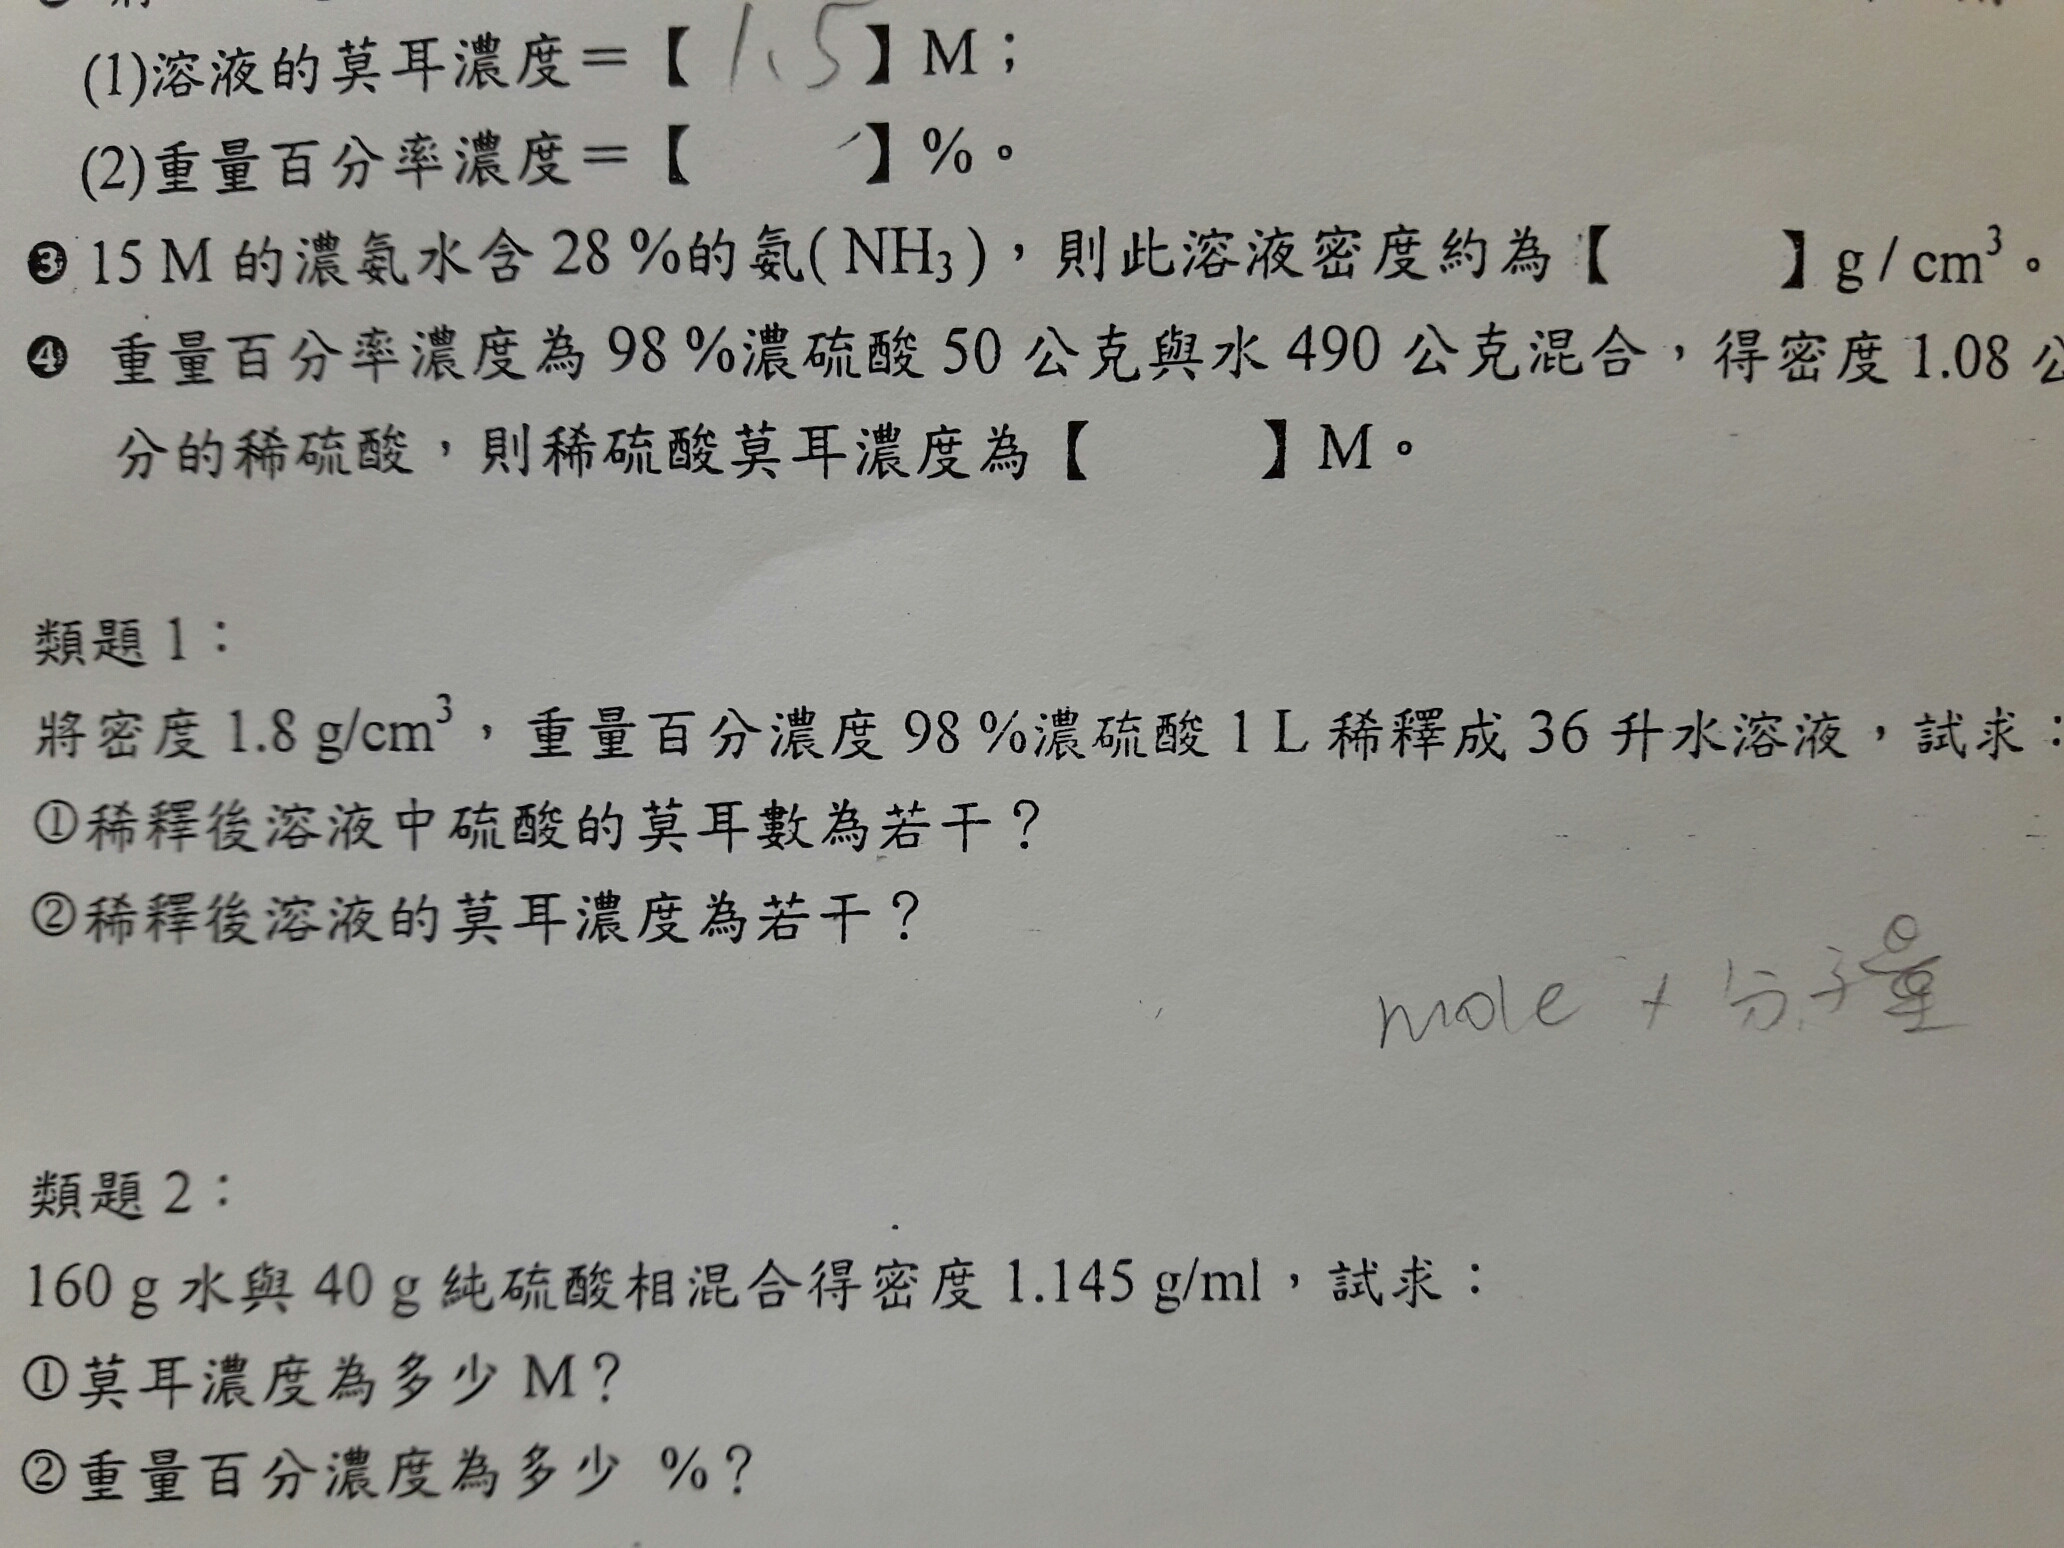 (1)溶液的莫耳濃度＝【 1.5 】M；
(2)重量百分率濃度＝【 】%。
❸ 15 M 的濃氨水含 28 %的氨( NH₃)，則此溶液密度約為【 】g / cm³。
❹ 重量百分率濃度為 98 %濃硫酸 50 公克與水 490 公克混合，得密度 1.08 公
分的稀硫酸，則稀硫酸莫耳濃度為【 】M。
類題 1：
將密度 1.8 g/cm³，重量百分濃度 98 %濃硫酸 1 L 稀釋成 36 升水溶液，試求：
①稀釋後溶液中硫酸的莫耳數為若干？
②稀釋後溶液的莫耳濃度為若干？
mole × 分子量
類題 2：
160 g 水與 40 g 純硫酸相混合得密度 1.145 g/ml，試求：
①莫耳濃度為多少 M？
②重量百分濃度為多少 %？